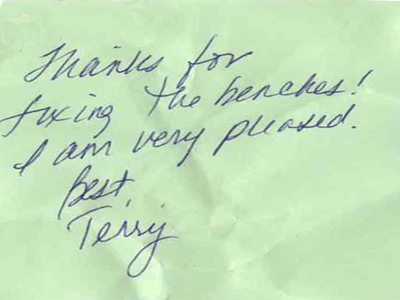 Thanks for
fixing the benches!
I am very pleased.
Best,
Terry